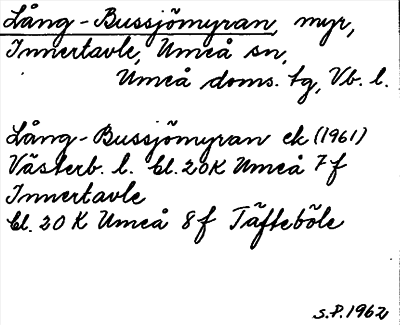 Lång-Bussjömyran, myr,
Innertavle, Umeå sn,
Umeå doms. tg, Vb. l.
Lång-Bussjömyran ek (1961)
Västerb. l. bl. 20K Umeå 7f
Innertavle
bl. 20 K Umeå 8f Täfteböle
S.P. 1962